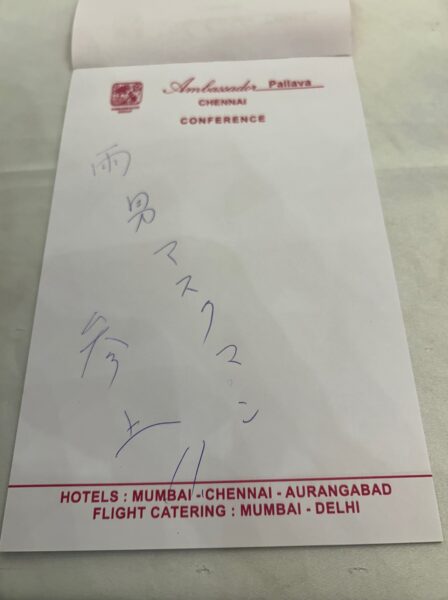 Ambassador Pallava
CHENNAI
CONFERENCE
雨男マスクマン
参上!!
HOTELS : MUMBAI - CHENNAI - AURANGABAD
FLIGHT CATERING : MUMBAI - DELHI